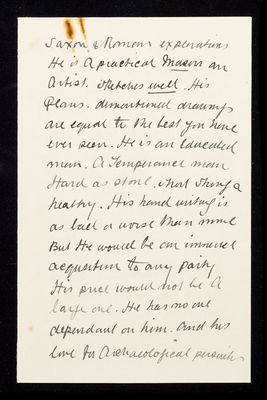 Saxon & Roman explorations
He is a practical Mason an
Artist. sketches well. His
Plans. dimentional drawings
are equal to the best you have
ever seen. He is an Educated
man. A Temperance man
Hard as stone. short strong &
healthy. His hand writing is
as bad or worse than mine
But He would be an immense
acquisition to any party
His price would not be a
large one. He has no one
dependant on him. and his
love for Archaeological persuits